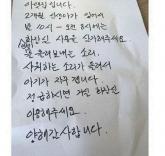 아랫집 입니다.
2개월 신생아가 있어서
밤 10시 — 오전 8시에는
화장실 사용을 신경써주세요
물 흘려보내는 소리,
샤워하는 소리가 울려서
아기가 자꾸 깹니다.
정 급하시면 거실 화장실
이용해주세요.
양해 감사합니다.